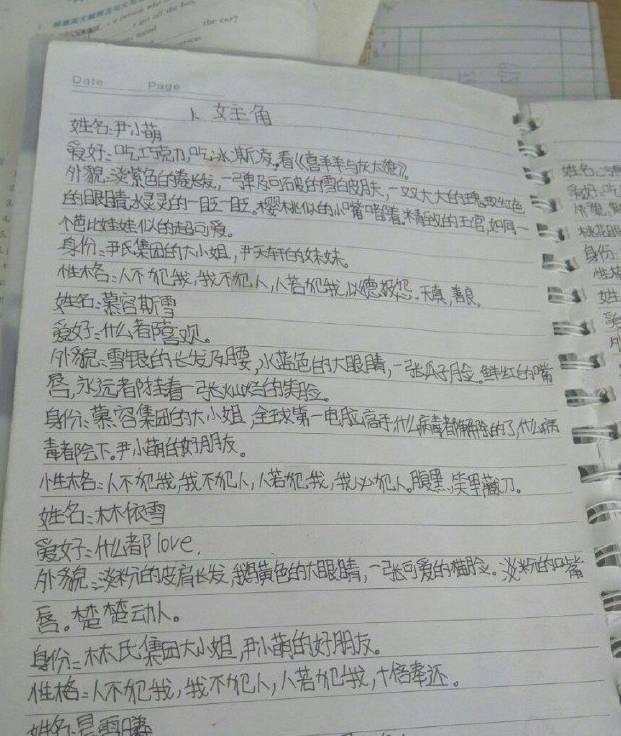 the car?
Date Page
1、女主角
姓名:尹小萌
爱好:吃巧克力,吃冰淇凌,看《喜羊羊与灰太狼》。
外貌:淡紫色的卷长发,一弹及可破的雪白皮肤,一双大大的玫红色
的眼睛水灵灵的一眨一眨。樱桃似的小嘴嘟着,精致的五官,如同一
个芭比娃娃似的超可爱。
身份:尹氏集团的大小姐,尹天轩的妹妹。
性格:人不犯我,我不犯人,人若犯我,以德报怨。天真,善良。
姓名:慕容斯雪
爱好:什么都喜欢。
外貌:雪银的长发及腰,水蓝色的大眼睛,一张瓜子脸。鲜红的嘴
唇,永远都挂着一张灿烂的笑脸。
身份:慕容集团的大小姐,全球第一电脑高手,什么病毒都解除的了,什么病
毒都会下。尹小萌的好朋友。
性格:人不犯我,我不犯人,人若犯我,我必犯人。腹黑,笑里藏刀。
姓名:林依雪
爱好:什么都love.
外貌:淡粉的披肩长发,鹅黄色的大眼睛,一张可爱的猫脸。淡粉的嘴
唇。楚楚动人。
身份:林氏集团大小姐,尹小萌的好朋友。
性格:人不犯我,我不犯人,人若犯我,十倍奉还。
姓名:
姓名:
身份:
姓